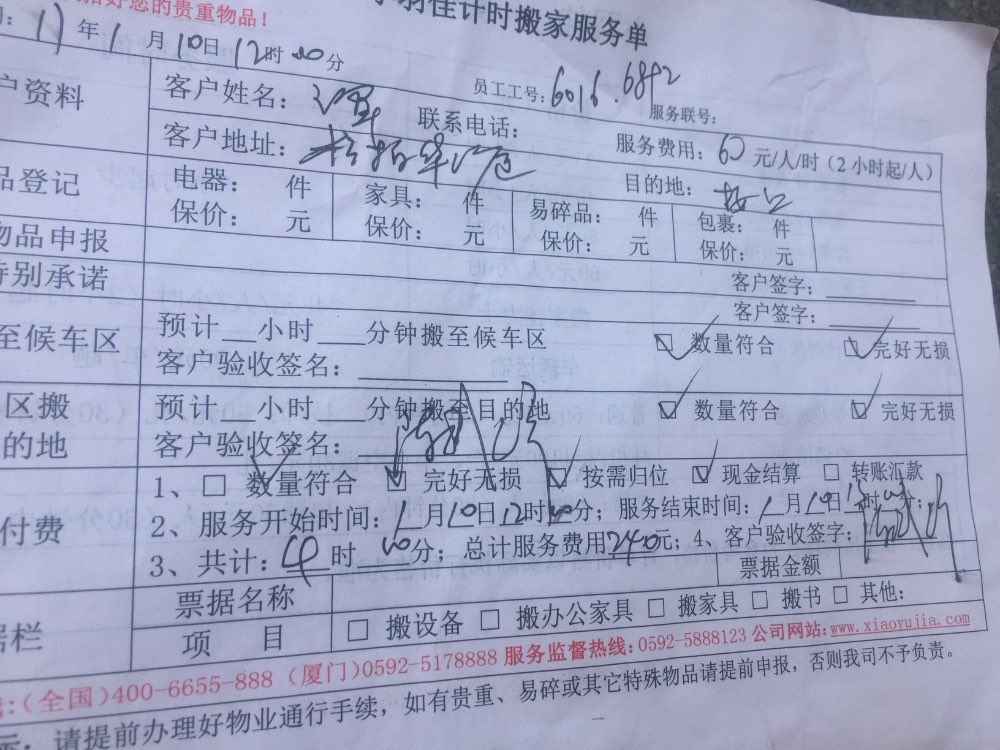 好您的贵重物品！
计时搬家服务单
17年1月10日12时00分
员工工号：6016.6892
服务联号：
户资料
客户姓名：
联系电话：
服务费用：60元/人/时（2小时起/人）
客户地址：
目的地：
品登记
电器： 件
家具： 件
易碎品： 件
包裹： 件
保价： 元
保价： 元
保价： 元
保价： 元
物品申报
客户签字：
特别承诺
客户签字：
至候车区
预计__小时___分钟搬至候车区
数量符合
完好无损
客户验收签名：
区搬
的地
预计__小时___分钟搬至目的地
数量符合
完好无损
客户验收签名：
付费
1、□ 数量符合 完好无损 按需归位 现金结算 □ 转账汇款
2、服务开始时间：1月10日12时00分；服务结束时间：1月10日
3、共计：4时00分；总计服务费用240元；4、客户验收签字：
据栏
票据名称
票据金额
项 目
□ 搬设备 □ 搬办公家具 □ 搬家具 □ 搬书 □ 其他：
：（全国）400-6655-888（厦门）0592-5178888 服务监督热线：0592-5888123 公司网站：www.xiaoyujia.com
示：请提前办理好物业通行手续，如有贵重、易碎或其它特殊物品请提前申报，否则我司不予负责。